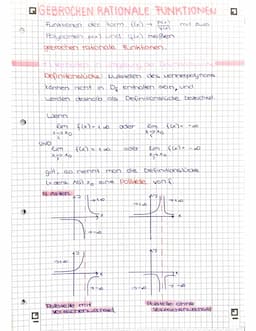 GEBROCHEN RATIONALE FUNKTIONEN
Funktionen der Form f(x) → p(x)/q(x) mit zwei
Polynomen p(x) und q(x) heißen
gebrochen rationale Funktionen.
Definitionslücke: Nullstellen des Nennerpolynoms
können nicht in Df enthalten sein, und
werden deshalb als Definitionslücke bezeichnet.
Wenn
lim f(x) = +∞ oder lim f(x) = -∞
x→x₀ x→x₀
UND
lim f(x) = +∞ oder lim f(x) = -∞
x→x₀ x→x₀
gilt, so nennt man die Definitionslücke
x₀ eine Polstelle von f.
4 Arten
Polstelle mit
Vorzeichenwechsel
Polstelle ohne
Vorzeichenwechsel